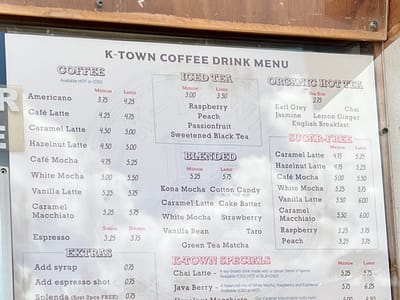 K-TOWN COFFEE DRINK MENU
COFFEE
Available HOT or ICED
MEDIUM LARGE
Americano 3.75 4.25
Café Latte 4.25 4.75
Caramel Latte 4.50 5.00
Hazelnut Latte 4.50 5.00
Café Mocha 5.00 5.50
White Mocha 5.25 5.75
Vanilla Latte 5.25 5.75
Caramel
Macchiato 5.25 5.75
SINGLE DOUBLE
Espresso 3.25 3.75
EXTRAS
Add syrup .75
Add espresso shot .75
Splenda (first 2pcs FREE)
ICED TEA
MEDIUM LARGE
3.00 3.50
Raspberry
Peach
Passionfruit
Sweetened Black Tea
BLENDED
MEDIUM LARGE
5.25 5.75
Kona Mocha Cotton Candy
Caramel Latte Cake Batter
White Mocha Strawberry
Vanilla Bean Taro
Green Tea Matcha
K-TOWN SPECIALS
Chai Latte -
Java Berry -
ORGANIC HOT TEA
ONE SIZE
2.75
Earl Grey Chai
Jasmine Lemon Ginger
English Breakfast
SUGAR-FREE
MEDIUM LARGE
Caramel Latte 4.75 5.25
Hazelnut Latte 4.75 5.25
Café Mocha 5.00 5.50
White Mocha 5.25 5.75
Vanilla Latte 5.50 6.00
Caramel
Macchiato 5.50 6.00
Raspberry 3.25 3.75
Peach 3.25 3.75